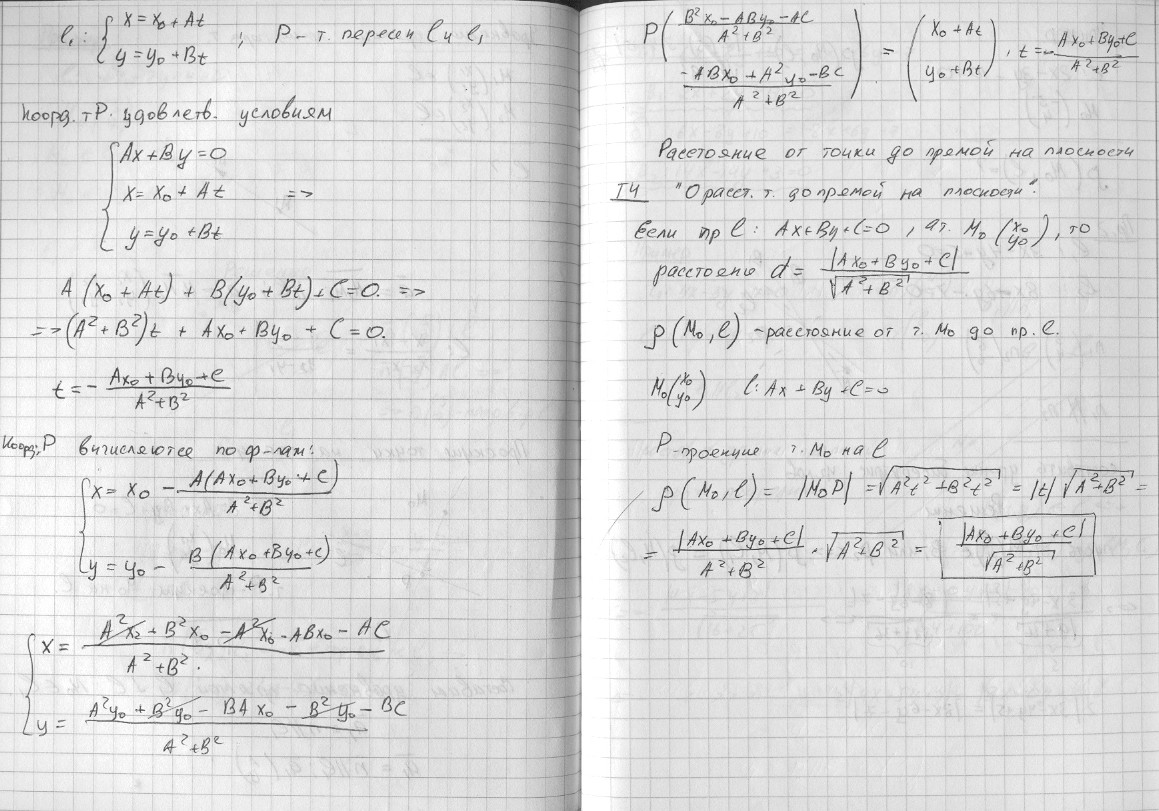 l₁: { x = x₀ + At
y = y₀ + Bt ; P - т. пересеч l и l₁
Коорд. т P. удовлетв. условиям
{ Ax + By = 0
x = x₀ + At =>
y = y₀ + Bt
A (x₀ + At) + B(y₀ + Bt) + C = 0. =>
=> (A² + B²)t + Ax₀ + By₀ + C = 0.
t = - (Ax₀ + By₀ + C)/(A² + B²)
Коорд. P вычисляются по ф-лам:
{ x = x₀ - A(Ax₀ + By₀ + C)/(A² + B²)
y = y₀ - B(Ax₀ + By₀ + C)/(A² + B²)
{ x = (A²x₀ + B²x₀ - A²x₀ - ABx₀ - AC)/(A² + B²)
y = (A²y₀ + B²y₀ - BAx₀ - B²y₀ - BC)/(A² + B²)
P( (B²x₀ - ABy₀ - AC)/(A² + B²)
(-ABx₀ + A²y₀ - BC)/(A² + B²) ) = ( x₀ + At
y₀ + Bt ), t = - (Ax₀ + By₀ + C)/(A² + B²)
Расстояние от точки до прямой на плоскости
T4 "О расст. т. до прямой на плоскости".
Если пр l: Ax + By + C = 0, а т. M₀ (x₀ y₀), то
расстояние d = |Ax₀ + By₀ + C|/√(A² + B²)
ρ(M₀, l) - расстояние от т. M₀ до пр. l.
M₀(x₀ y₀) l: Ax + By + C = 0
P - проекция т. M₀ на l
ρ(M₀, l) = |M₀P| = √(A²t² + B²t²) = |t| √(A² + B²) =
= |Ax₀ + By₀ + C|/(A² + B²) · √(A² + B²) = |Ax₀ + By₀ + C|/√(A² + B²)